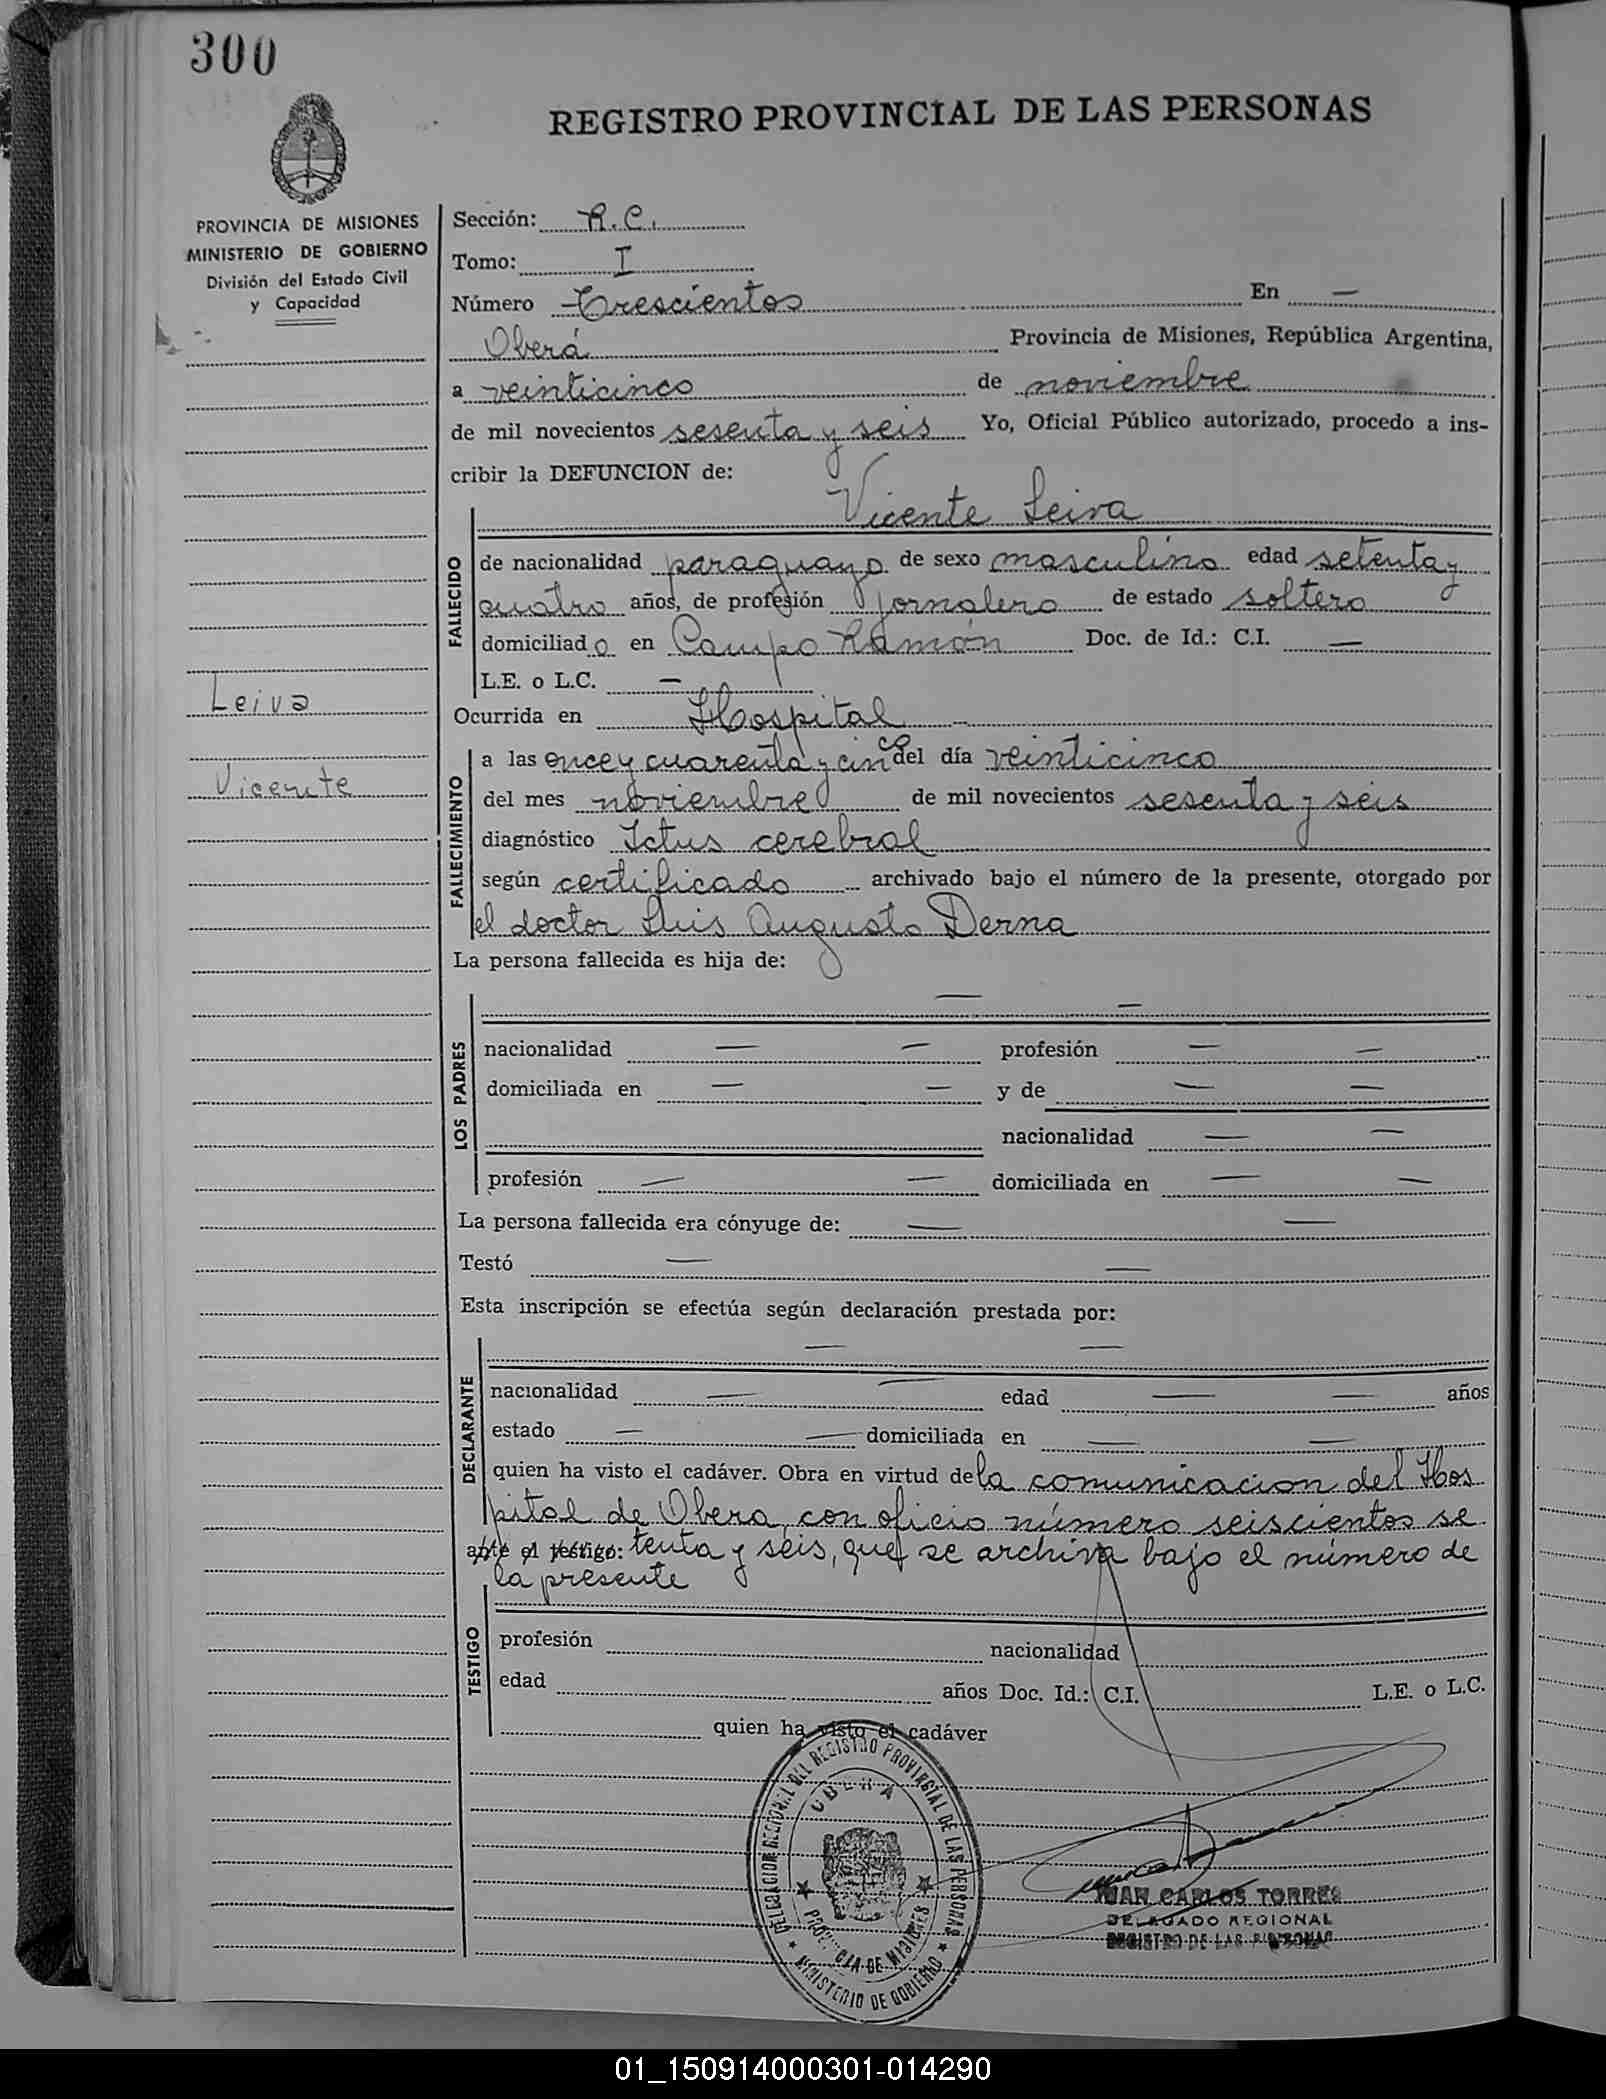 300
REGISTRO PROVINCIAL DE LAS PERSONAS
PROVINCIA DE MISIONES
MINISTERIO DE GOBIERNO
División del Estado Civil
y Capacidad
Leiva
Vicente
Sección: R.C.
Tomo: I
Número Trescientos En —
Oberá Provincia de Misiones, República Argentina,
a veinticinco de noviembre
de mil novecientos sesenta y seis Yo, Oficial Público autorizado, procedo a ins-
cribir la DEFUNCION de:
Vicente Leiva
FALLECIDO
de nacionalidad paraguayo de sexo masculino edad setenta y
cuatro años, de profesión jornalero de estado soltero
domiciliado en Campo Ramón Doc. de Id.: C.I. —
L.E. o L.C. —
Ocurrida en Hospital —
FALLECIMIENTO
a las once y cuarenta y cinco del día veinticinco
del mes noviembre de mil novecientos sesenta y seis
diagnóstico Ictus cerebral
según certificado archivado bajo el número de la presente, otorgado por
el doctor Luis Augusto Derna
La persona fallecida es hija de:
LOS PADRES
— —
nacionalidad — — profesión — —
domiciliada en — — y de — —
nacionalidad — —
profesión — — domiciliada en — —
La persona fallecida era cónyuge de: — —
Testó — —
Esta inscripción se efectúa según declaración prestada por:
DECLARANTE
— —
nacionalidad — — edad — — años
estado — — domiciliada en — —
quien ha visto el cadáver. Obra en virtud de la comunicacion del Hos
pital de Obera, con oficio número seiscientos se
ante el testigo: tenta y seis, que se archiva bajo el número de
la presente
TESTIGO
profesión nacionalidad
edad años Doc. Id.: C.I. L.E. o L.C.
quien ha visto el cadáver
DELEGACION REGIONAL DEL REGISTRO PROVINCIAL DE LAS PERSONAS
OBERA
PROVINCIA DE MISIONES
MINISTERIO DE GOBIERNO
JUAN CARLOS TORRES
DELEGADO REGIONAL
REGISTRO DE LAS PERSONAS
01_150914000301-014290